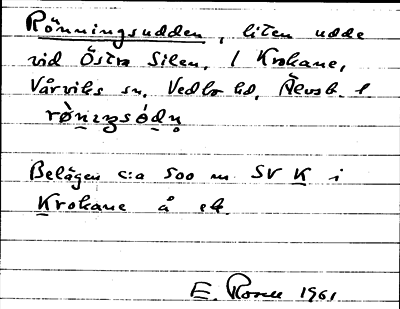 Rönningsudden, liten udde
vid Östra Silen, 1 Krokane,
Vårviks sn, Vedbo hd, Älvsb. l
rö̀nıŋsódn̥
Belägen c:a 500 m SV K i
Krokane å ek.
E. Rosell 1961